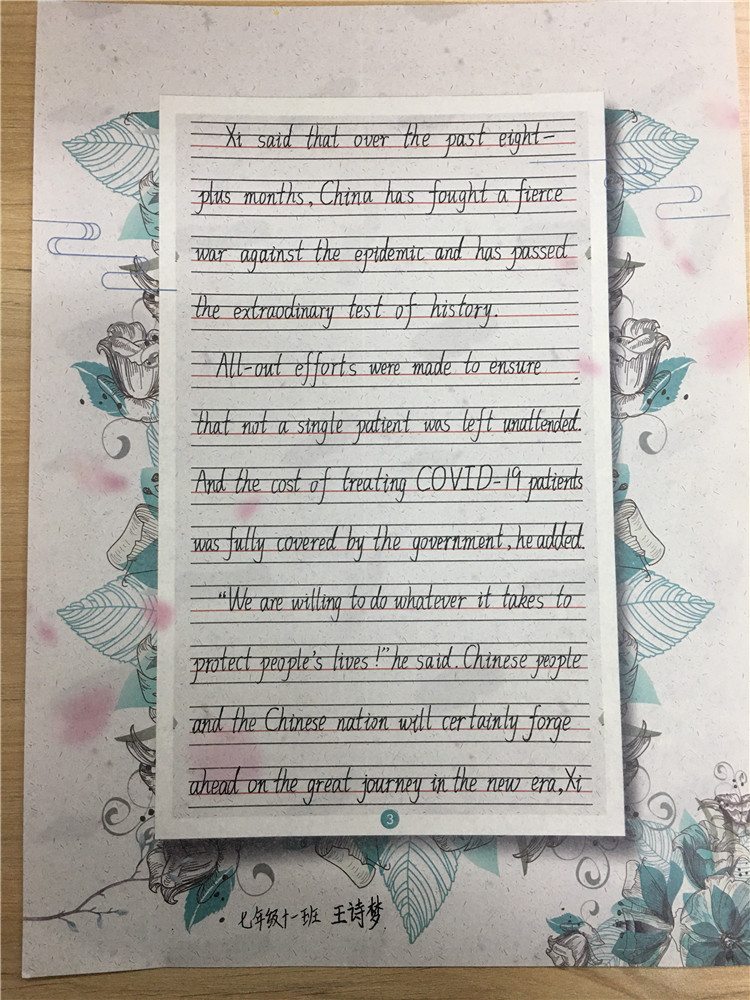 Xi said that over the past eight-
plus months, China has fought a fierce
war against the epidemic and has passed
the extraodinary test of history.
All-out efforts were made to ensure
that not a single patient was left unattended.
And the cost of treating COVID-19 patients
was fully covered by the government, he added.
"We are willing to do whatever it takes to
protect people's lives!" he said. Chinese people
and the Chinese nation will certainly forge
ahead on the great journey in the new era, Xi
3
七年级十一班 王诗梦